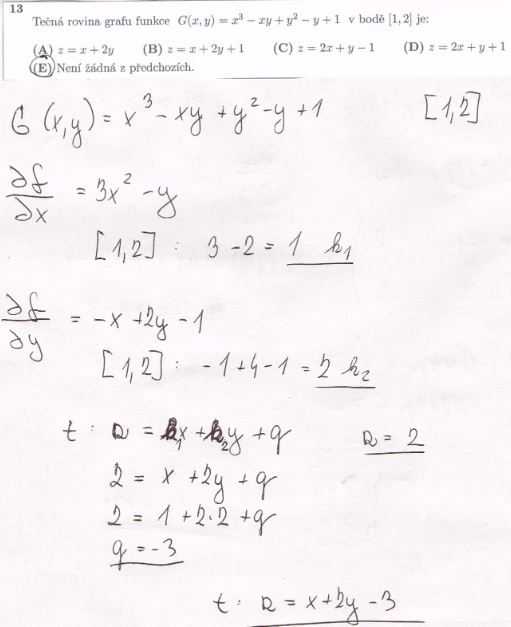 13
Tečná rovina grafu funkce G(x, y) = x³ − xy + y² − y + 1 v bodě [1, 2] je:
(A) z = x + 2y (B) z = x + 2y + 1 (C) z = 2x + y − 1 (D) z = 2x + y + 1
(E) Není žádná z předchozích.
G (x,y) = x³ - xy + y² - y + 1 [1,2]
∂f/∂x = 3x² - y
[1,2] : 3 - 2 = 1 k₁
∂f/∂y = -x + 2y - 1
[1,2] : -1 + 4 - 1 = 2 k₂
t : z = k₁x + k₂y + q z = 2
2 = x + 2y + q
2 = 1 + 2·2 + q
q = -3
t : z = x + 2y - 3